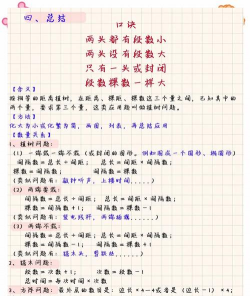 四、总结
口诀
两头都有段数小
两头没有段数大
只有一头或封闭
段数棵数一样大
【含义】
按相等的距离植树，在距离、棵距、棵数这三个量之间，已知其中的
两个量，要求第三个量，这类应用题叫的植树问题。
【方法】
化大为小或化繁为简，画图，列表，再总结应用
【数量关系】
1、植树问题：
(1) 一端栽一端不栽（或封闭的图形，例如围成一个圆形、椭圆形）
间隔数=总长÷间距； 总长=间距×间隔数；
棵数=间隔数； 间隔数=棵数
(类似问题有：敲钟听声，上楼时间......)
(2) 两端要栽：
间隔数=总长÷间距； 总长=间距×间隔数；
棵数=间隔数+1； 间隔数=棵数-1
(类似问题有：竖电线杆，两端插旗......)
(3) 两端不栽：
间隔数=总长÷间距； 总长=间距×间隔数；
棵数=间隔数-1； 间隔数=棵数+1
(类似问题有：锯木头，剪跳绳......)
2、锯木问题：
段数=次数+1； 次数=段数-1
总时间=每次时间×次数
3、方阵问题：最外层的数目是：边长×4-4或者是（边长-1）×4；